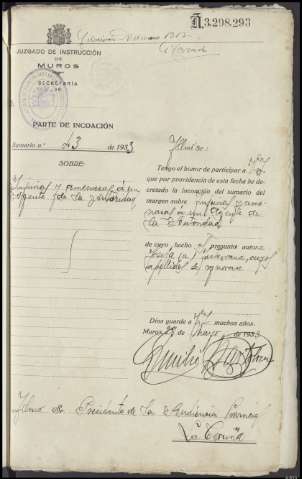 A 3.298.293
JUZGADO DE INSTRUCCIÓN
DE
MUROS
SECRETARÍA
PARTE DE INCOACIÓN
Sumario n.º 43 de 1933
SOBRE
Injurias y amenazas a un
Agente de la Autoridad
Ilmo Sr.
Tengo el honor de participar a V.I.
que por providencia de esta fecha he de-
cretado la incoación del sumario del
margen sobre injurias y ame-
nazas a un Agente de
la Autoridad
de cuyo hecho es presunto autor
apellidos se ignoran
Dios guarde a V.I. muchos años.
Muros de Mayo de 1933
Emilio
Ilmo Sr. Presidente de la Audiencia Provincial
La Coruña